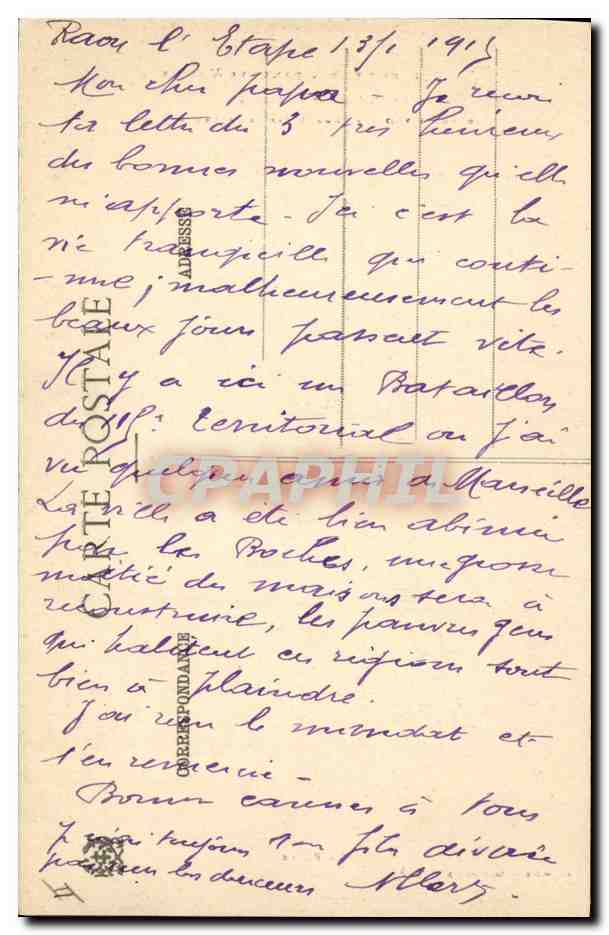 Raon l'Etape 13/1 1915
Mon cher papa - Je reçois
ta lettre du 3 très heureux
des bonnes nouvelles qu'elle
m'apporte - Ici c'est la
vie tranquille qui conti-
-nue, malheureusement les
beaux jours passent vite.
Il y a ici un Bataillon
du 115e territorial ou j'ai
vu quelques amis de Marseille
La ville a été bien abimée
par les Boches, une grosse
moitié des maisons sera à
reconstruire, les pauvres gens
qui habitent ces régions sont
bien à plaindre.
J'ai reçu le mandat et
t'en remercie -
Bonnes caresses à tous
toujours ton fils
les douceurs
CARTE POSTALE
ADRESSE
CORRESPONDANCE
CPAPHIL